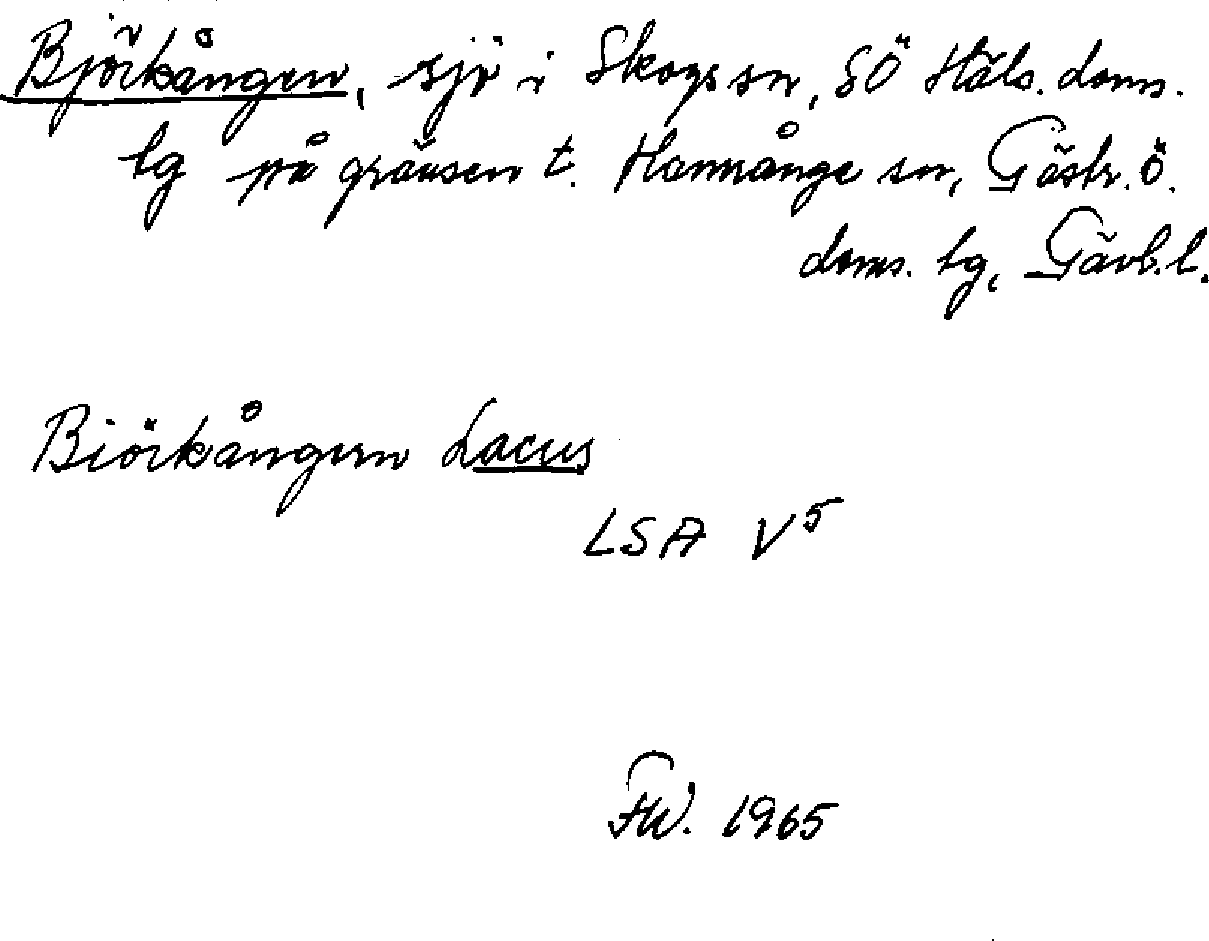 Björkången, sjö i Skogs sn, SÖ Häls. doms.
lg på gränsen t. Hamrånge sn, Gästr. Ö.
doms. lg, Gävb. l.
Biörkångern Lacus
LSA V5
FW. 1965